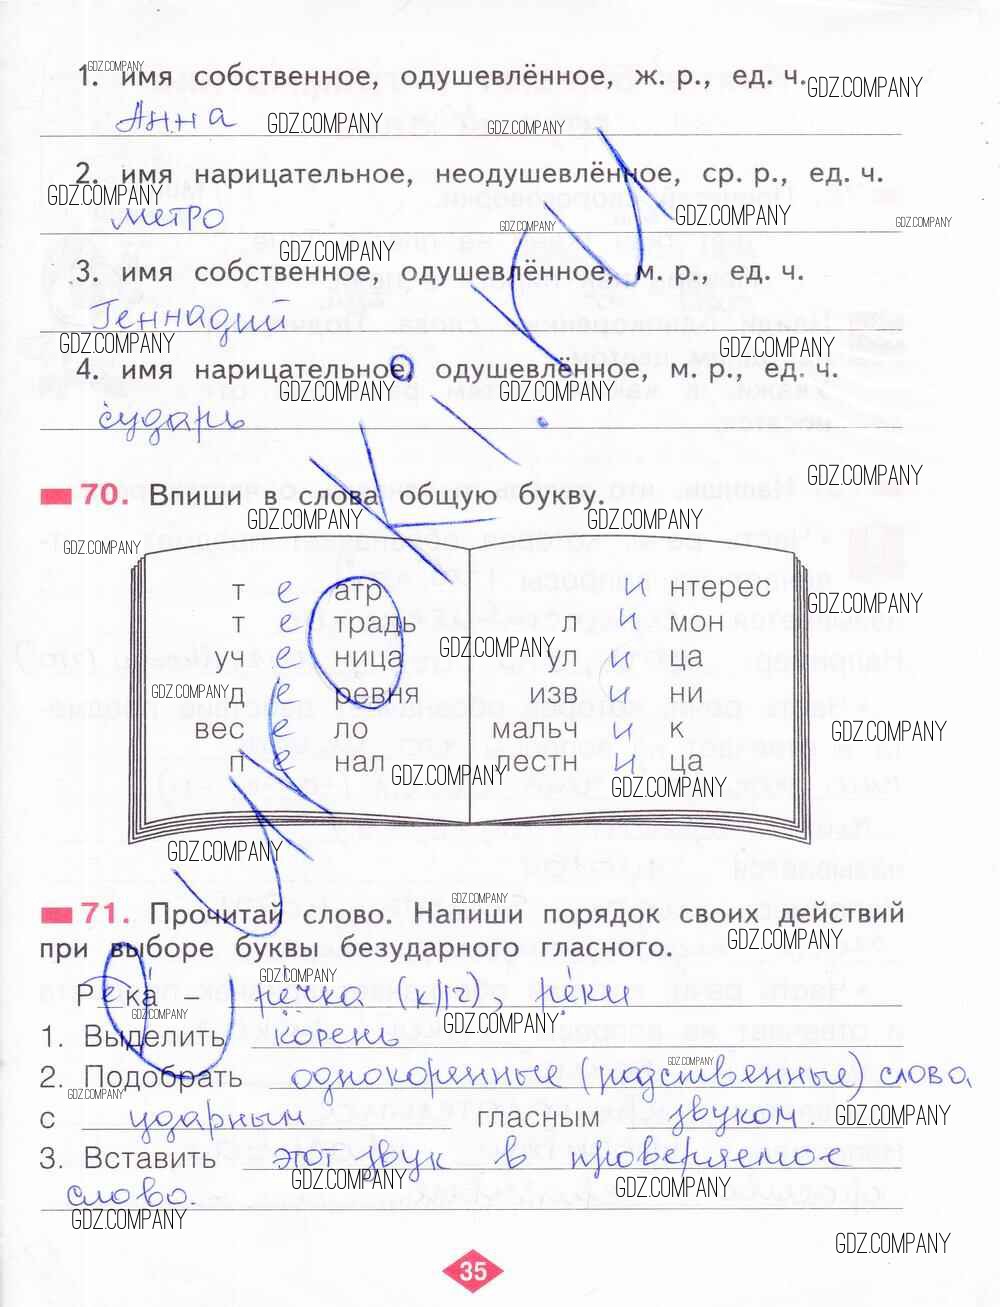 1. имя собственное, одушевлённое, ж. р., ед. ч.
Анна
2. имя нарицательное, неодушевлённое, ср. р., ед. ч.
метро
3. имя собственное, одушевлённое, м. р., ед. ч.
Геннадий
4. имя нарицательное, одушевлённое, м. р., ед. ч.
сударь
70. Впиши в слова общую букву.
т е атр
т е традь
уч е ница
д е ревня
вес е ло
п е нал
и нтерес
л и мон
ул и ца
изв и ни
мальч и к
лестн и ца
71. Прочитай слово. Напиши порядок своих действий
при выборе буквы безударного гласного.
Река́ – ре́чка (к//ч), ре́ки
1. Выделить корень
2. Подобрать однокоренные (родственные) слова
с ударным гласным звуком.
3. Вставить этот звук в проверяемое
слово.
35
GDZ.COMPANY